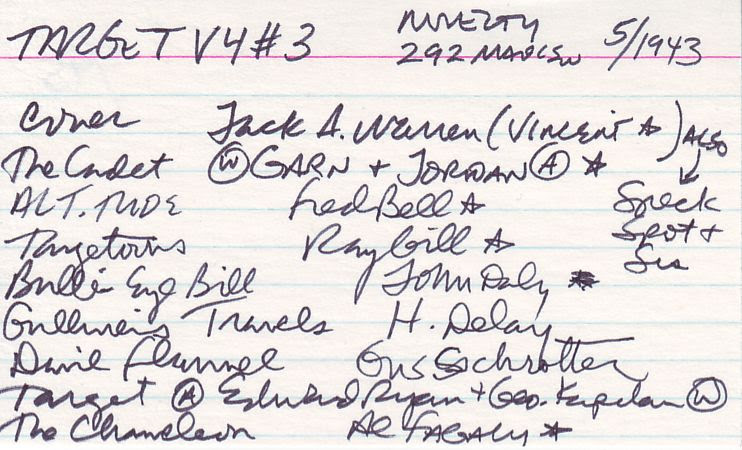 TARGET V4 #3 NOVELTY 5/1943
292 MADISON
Cover Jack A. Warren (Vincent ☆) ALSO
The Cadet Ⓦ GARN + JORDAN Ⓐ ☆
ALT. TUDE Fred Bell ☆ Speck
Targetoons Ray Gill ☆ Spot +
Bulls Eye Bill John Daly ☆ Sis
Gulliver's Travels H. Delay
Dave Flannel Gus Schrotter
Target Ⓐ Edward Ryan + Geo. Kapitan Ⓦ
The Chameleon Al FAGALY ☆